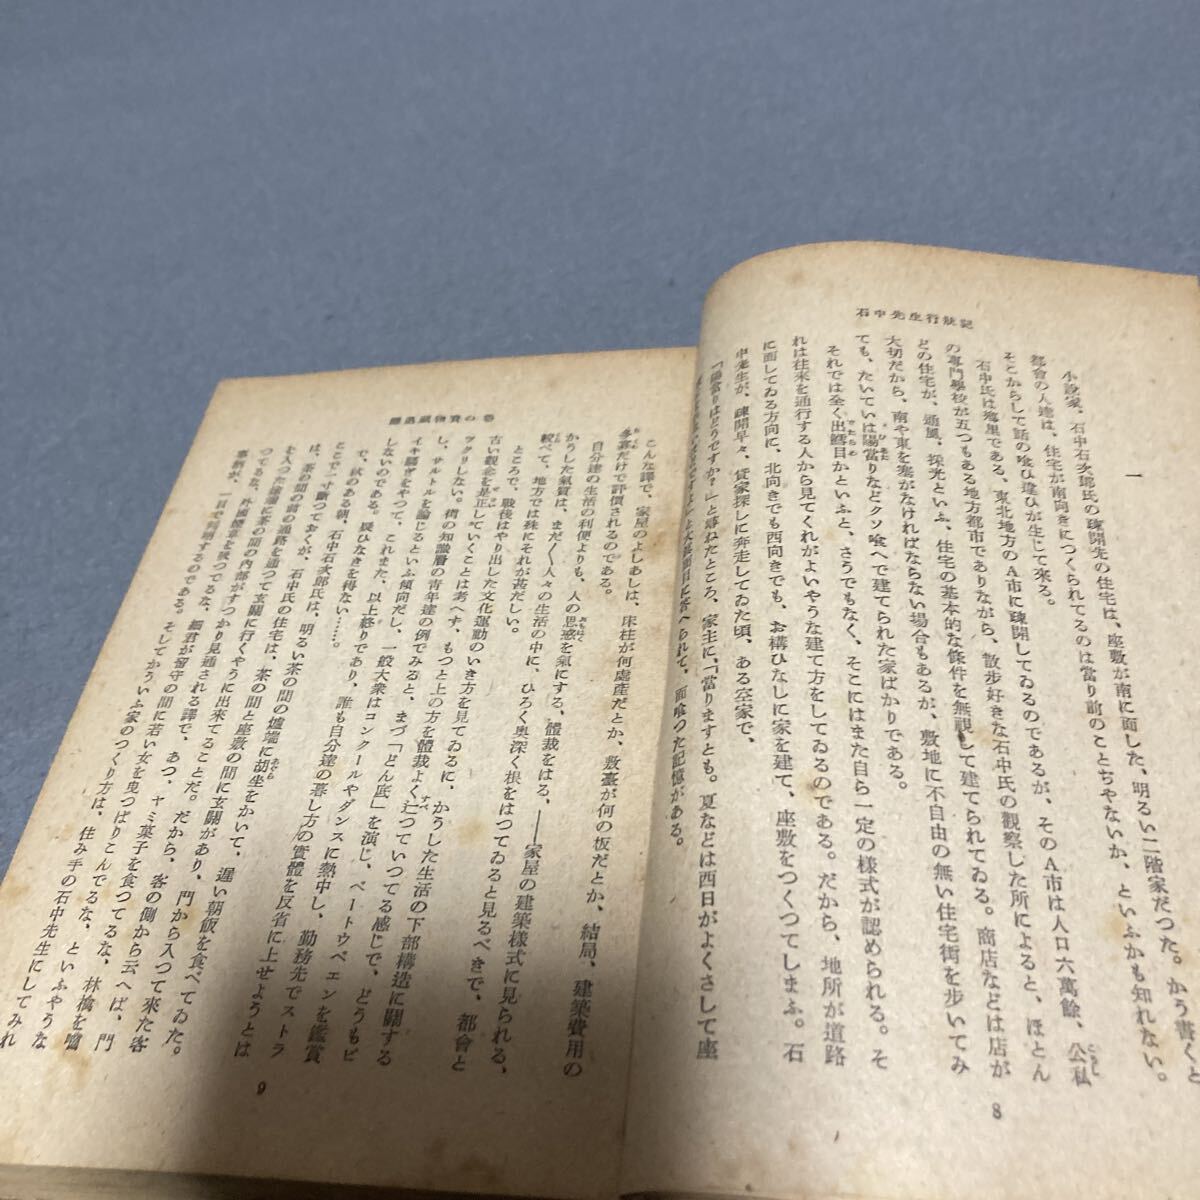 石中先生行狀記
一
小說家、石中石次郎氏の疎開先の住宅は、座敷が南に面した、明るい二階家だつた。かう書くと
都會の人達は、住宅が南向きにつくられてるのは當り前のことぢやないか、といふかも知れない。
そこからして話の喰ひ違ひが生じて來る。
石中氏は鄕里である、東北地方のA市に疎開してゐるのであるが、そのA市は人口六萬餘、公私
の專門學校が五つもある地方都市でありながら、散步好きな石中氏の觀察した所によると、ほとん
どの住宅が、通風、採光といふ、住宅の基本的な條件を無視して建てられてゐる。商店などは店が
大切だから、南や東を塞がなければならない場合もあるが、敷地に不自由の無い住宅街を步いてみ
ても、たいていは陽當りなどクソ喰へで建てられた家ばかりである。
それでは全く出鱈目かといふと、さうでもなく、そこにはまた自ら一定の樣式が認められる。そ
れは往來を通行する人から見てくれがよいやうな建て方をしてゐるのである。だから、地所が道路
に面してゐる方向に、北向きでも西向きでも、お構ひなしに家を建て、座敷をつくつてしまふ。石
中先生が、疎開早々、貸家探しに奔走してゐた頃、ある空家で、
「陽當りはどうですか？」と尋ねたところ、家主に、「當りますとも。夏などは西日がよくさして座
と大眞面目に答へられて、面喰つた記憶がある。
8
物資の卷
こんな譯で、家屋のよしあしは、床柱が何處產だとか、敷臺が何の板だとか、結局、建築費用の
多寡だけで評價されるのである。
自分達の生活の利便よりも、人の思惑を氣にする、體裁をはる、――家屋の建築樣式に見られる、
かうした氣質は、まだ〱人々の生活の中に、ひろく奧深く根をはつてゐると見るべきで、都會と
較べて、地方では殊にそれが甚だしい。
ところで、戰後はやり出した文化運動のいき方を見てゐるに、かうした生活の下部構造に關する
古い觀念を是正していくことは考へず、もつと上の方を體裁よく辷つていつてる感じで、どうもピ
ツクリしない。街の知識層の靑年達の例でみると、まづ「どん底」を演じ、ベートウベエンを鑑賞
し、サルトルを論じるといふ傾向だし、一般大衆はコンクールやダンスに熱中し、勤務先でストラ
イキ騷ぎをやつて、これまた、以上終りであり、誰も自分達の暮し方の實體を反省に上せようとは
しないのである。疑ひなきを得ない……。
で、秋のある朝、石中石次郎氏は、明るい茶の間の爐端に胡坐をかいて、遲い朝飯を食べてゐた。
ここで一寸斷つておくが、石中氏の住宅は、茶の間と座敷の間に玄關があり、門から入つて來た客
は、茶の間の前の通路を通つて玄關に行くやうに出來てることだ。だから、客の側から云へば、門
を入つた途端に茶の間の內部がすつかり見通される譯で、あつ、ヤミ菓子を食つてるな、林檎を嚙
つてるな、外國煙草を吸つてるな、細君が留守の間に若い女を曳つぱりこんでるな、といふやうな
事柄が、一目で判明するのである。そしてかういふ家のつくり方は、住み手の石中先生にしてみれ
9